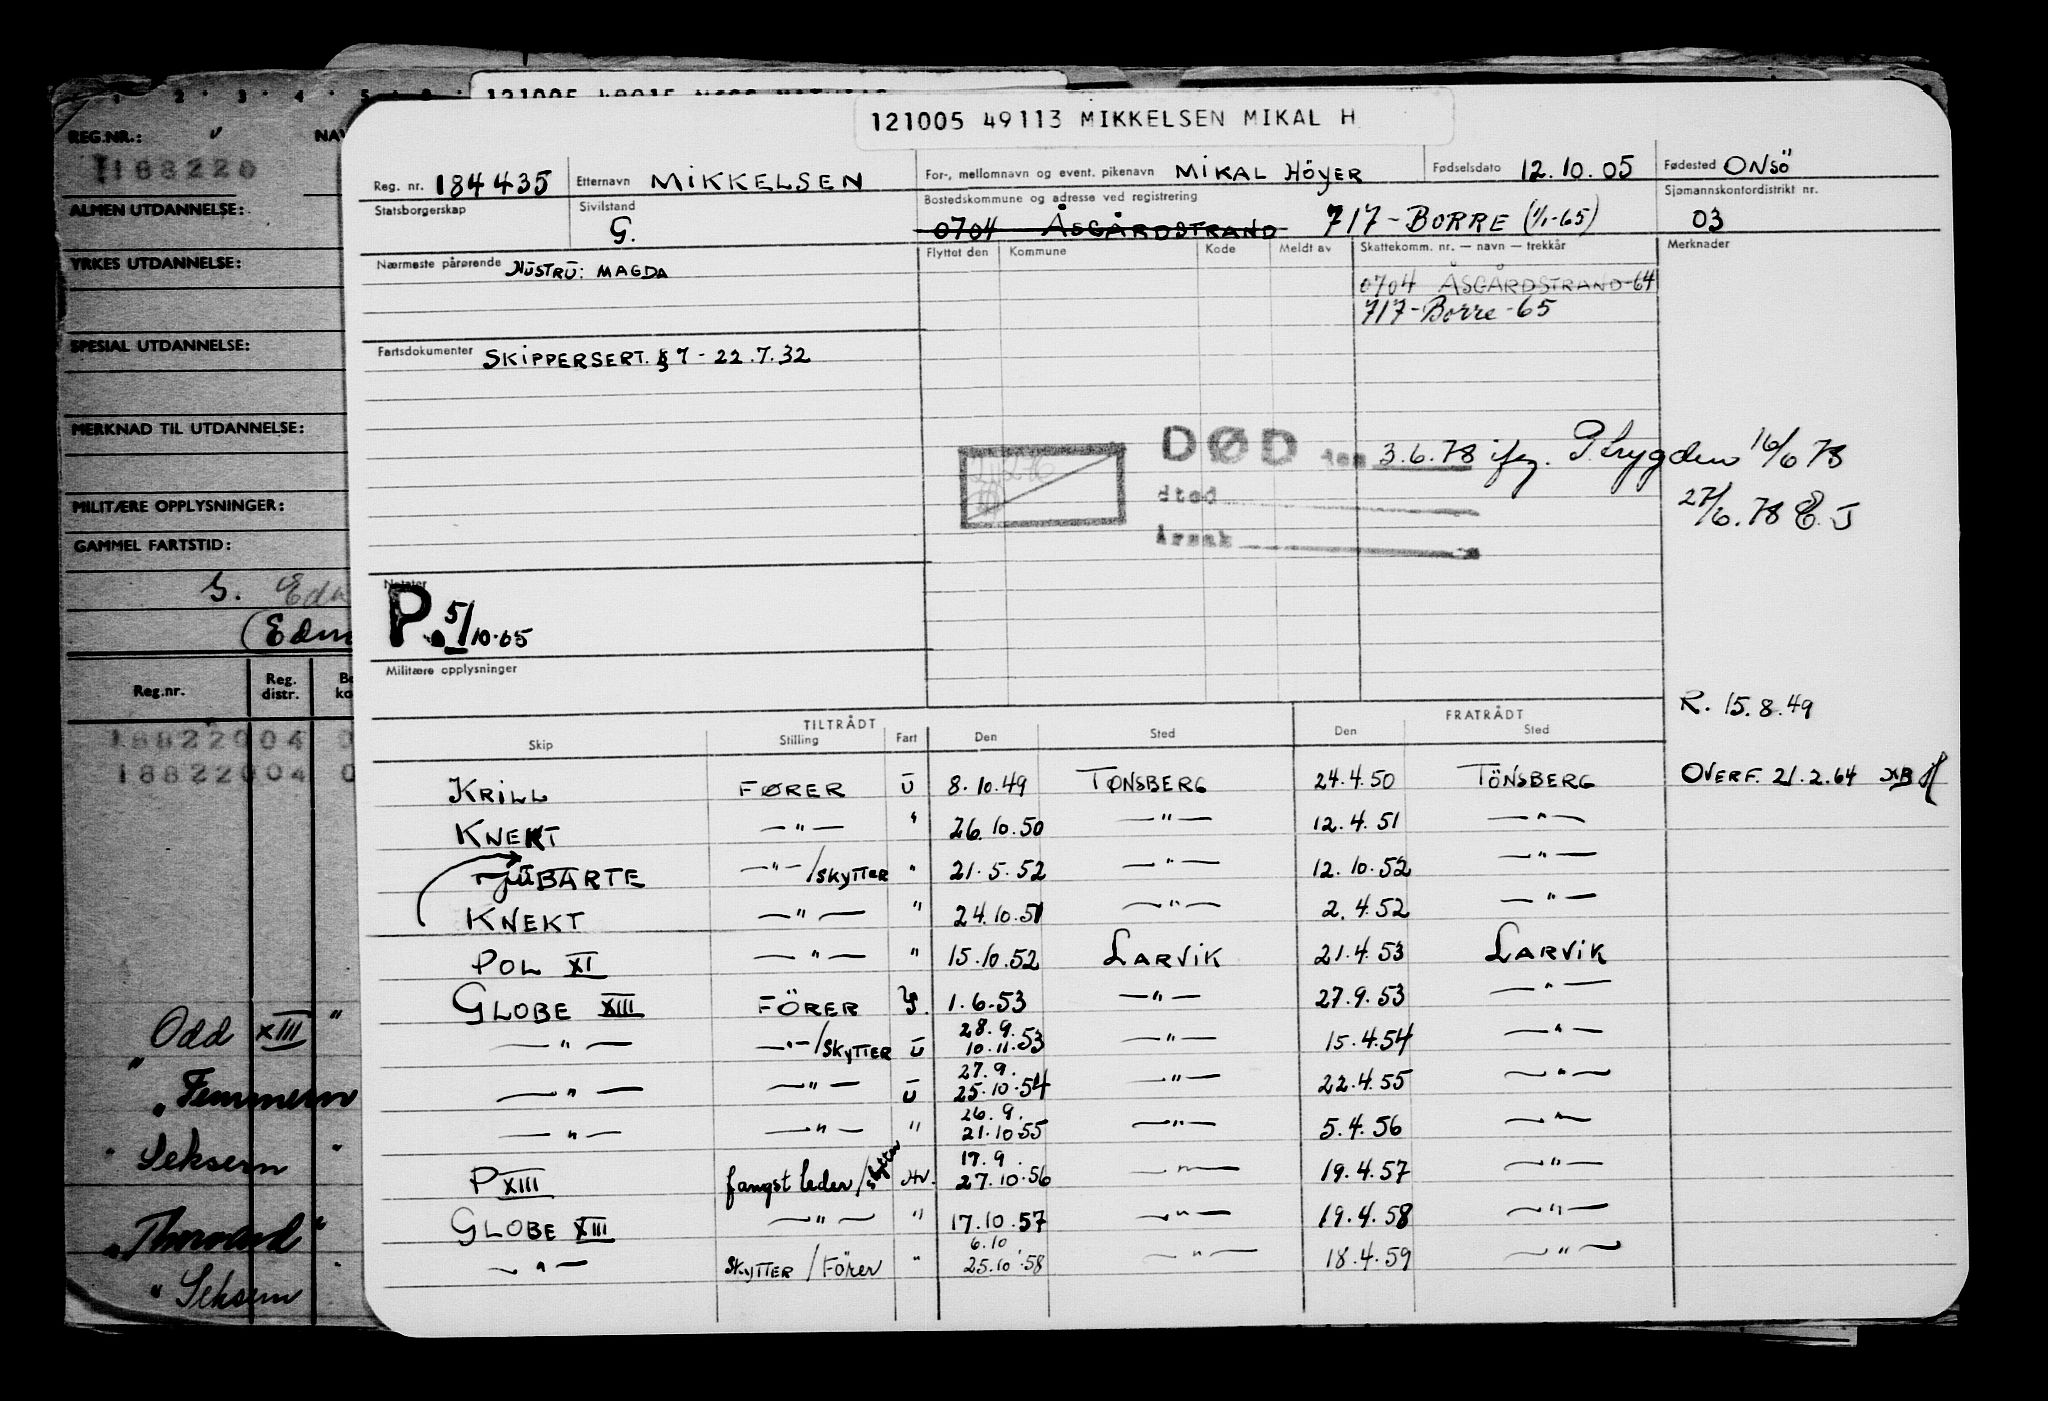 121005 49113 MIKKELSEN MIKAL H
Reg. nr. 184435 Etternavn MIKKELSEN For-, mellomnavn og event. pikenavn MIKAL HÖYER Fødselsdato 12.10.05 Fødested ONSÖ
Statsborgerskap Sivilstand G. Bostedskommune og adresse ved registrering 0704 ÅSGÅRDSTRAND 717-BORRE (1/1-65) Sjømannskontordistrikt nr. 03
Nærmeste pårørende HUSTRU: MAGDA Flyttet den Kommune Kode Meldt av Skattekomm. nr. — navn — trekkår Merknader
0704 ÅSGÅRDSTRAND-64
717-Borre-65
Fartsdokumenter SKIPPERSERT. § 7 - 22.7.32
DØD den 3.6.78 ifg. P.trygden 16/6 78
dted
Årsak
27/6.78 E.J
Notater
P. 5/10-65
Militære opplysninger
R. 15.8.49
TILTRÅDT FRATRÅDT
Skip Stilling Fart Den Sted Den Sted
KRILL FØRER U 8.10.49 TØNSBERG 24.4.50 TÖNSBERG OVERF. 21.2.64
KNEKT —"— " 26.10.50 —"— 12.4.51 —"—
JUBARTE —"—/SKYTTER " 21.5.52 —"— 12.10.52 —"—
KNEKT —"— " 24.10.51 —"— 2.4.52 —"—
POL XI —"— " 15.10.52 LARVIK 21.4.53 LARVIK
GLOBE XIII FÖRER 1.6.53 —"— 27.9.53 —"—
—"— —"—/SKYTTER U 28.9. 10.11.53 —"— 15.4.54 —"—
—"— —"— U 27.9. 25.10.54 —"— 22.4.55 —"—
—"— —"— " 26.9. 21.10.55 —"— 5.4.56 —"—
P XIII fangstleder/skytter Hv. 17.9. 27.10.56 —"— 19.4.57 —"—
GLOBE XIII —"— " 17.10.57 —"— 19.4.58 —"—
—"— SKYTTER/Förer " 6.10 25.10.58 —"— 18.4.59 —"—
REG.NR.: NAV
188220
ALMEN UTDANNELSE:
YRKES UTDANNELSE:
SPESIAL UTDANNELSE:
MERKNAD TIL UTDANNELSE:
MILITÆRE OPPLYSNINGER:
GAMMEL FARTSTID:
Reg.nr. Reg. distr.
188220 04
188220 04
Odd XIII "
"Femmern
"Seksern "
"Thorvard"
"Seksern